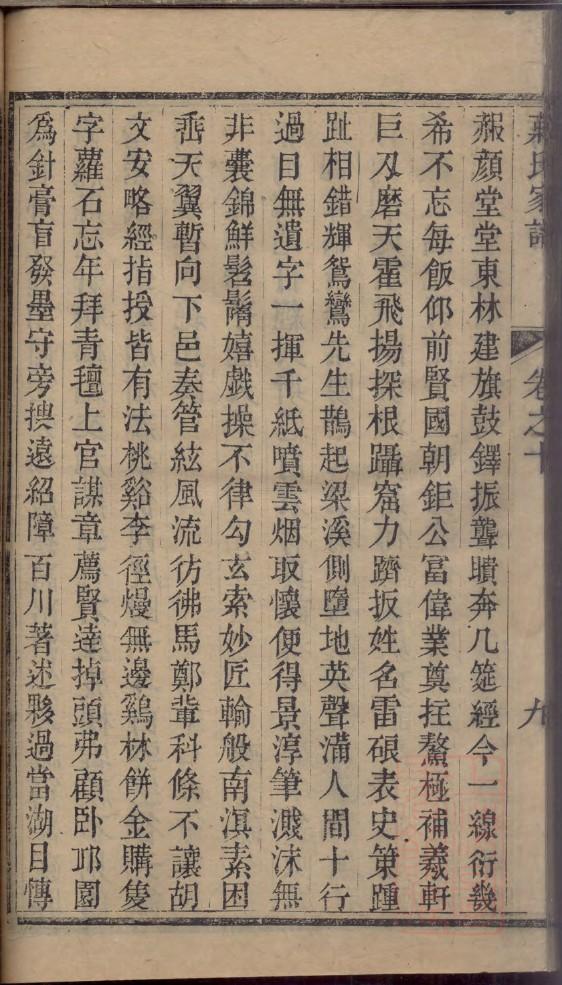 氏家譜
卷之十
九
赧顏堂堂東林建旗鼓鐸振聾聵奔几筵經今一線衍幾
希不忘每飯仰前賢國朝鉅公富偉業奠拄鰲極補羲軒
巨刄磨天霍飛揚探根躡窟力躋扳姓名雷硠表史策踵
趾相錯輝鴛鸞先生鵲起梁溪側墮地英聲滿人間十行
過目無遺字一揮千紙噴雲烟取懷便得景淳筆濺沫無
非囊錦鮮髫鬌嬉戲操不律勾玄索妙匠輸般南溟素困
垂天翼暫向下邑奏管絃風流彷彿馬鄭輩科條不讓胡
文安略經指授皆有法桃谿李徑熳無邊鷄林餅金購隻
字蘿石忘年拜青氊上官謀章薦賢達掉頭弗顧卧邱園
爲針膏肓發墨守旁搜遠紹障百川著述夥過當湖目慱